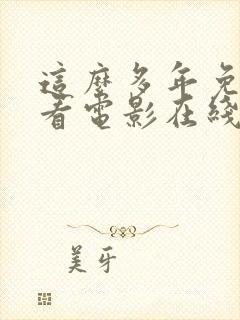 這麼多年免
看電影在綫
美牙